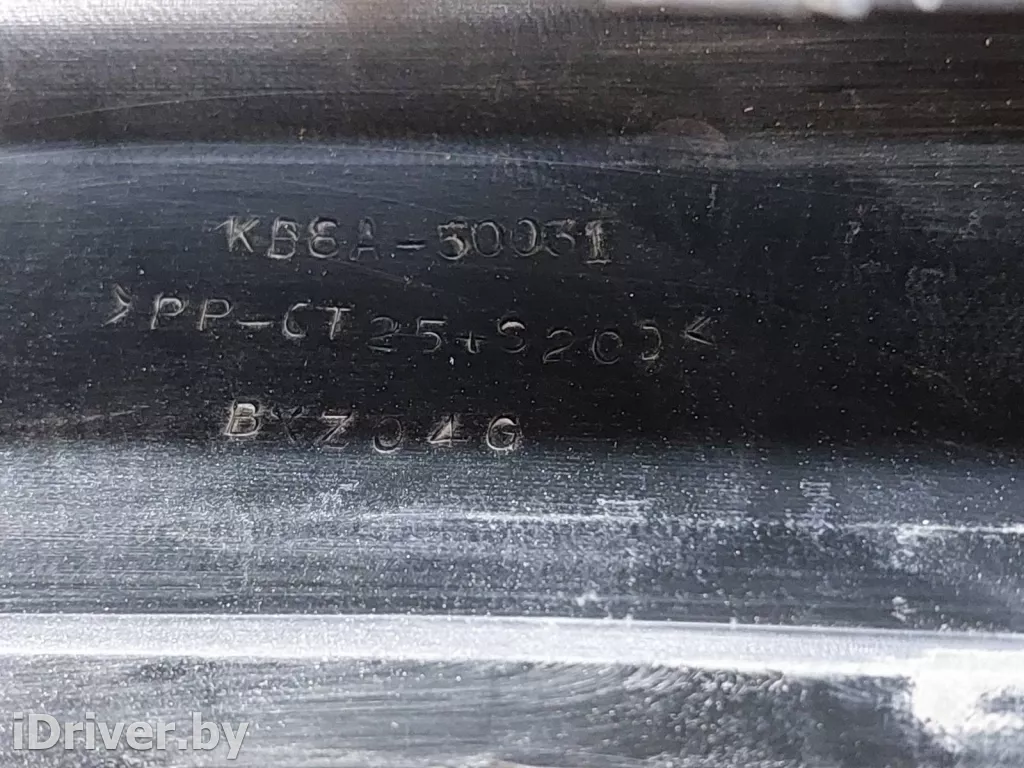 KB8A-50031
>PP-CT25+S20()<
BXZ04G
iDriver.by